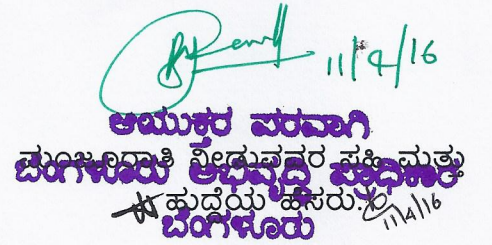 11/4/16
ಆಯುಕ್ತರ ಪರವಾಗಿ
ಮಂಜೂರಾತಿ ನೀಡುವವರ ಸಹಿ ಮತ್ತು
ಬೆಂಗಳೂರು ಅಭಿವೃದ್ಧಿ ಪ್ರಾಧಿಕಾರ
ಹುದ್ದೆಯ ಹೆಸರು.
11/4/16
ಬೆಂಗಳೂರು